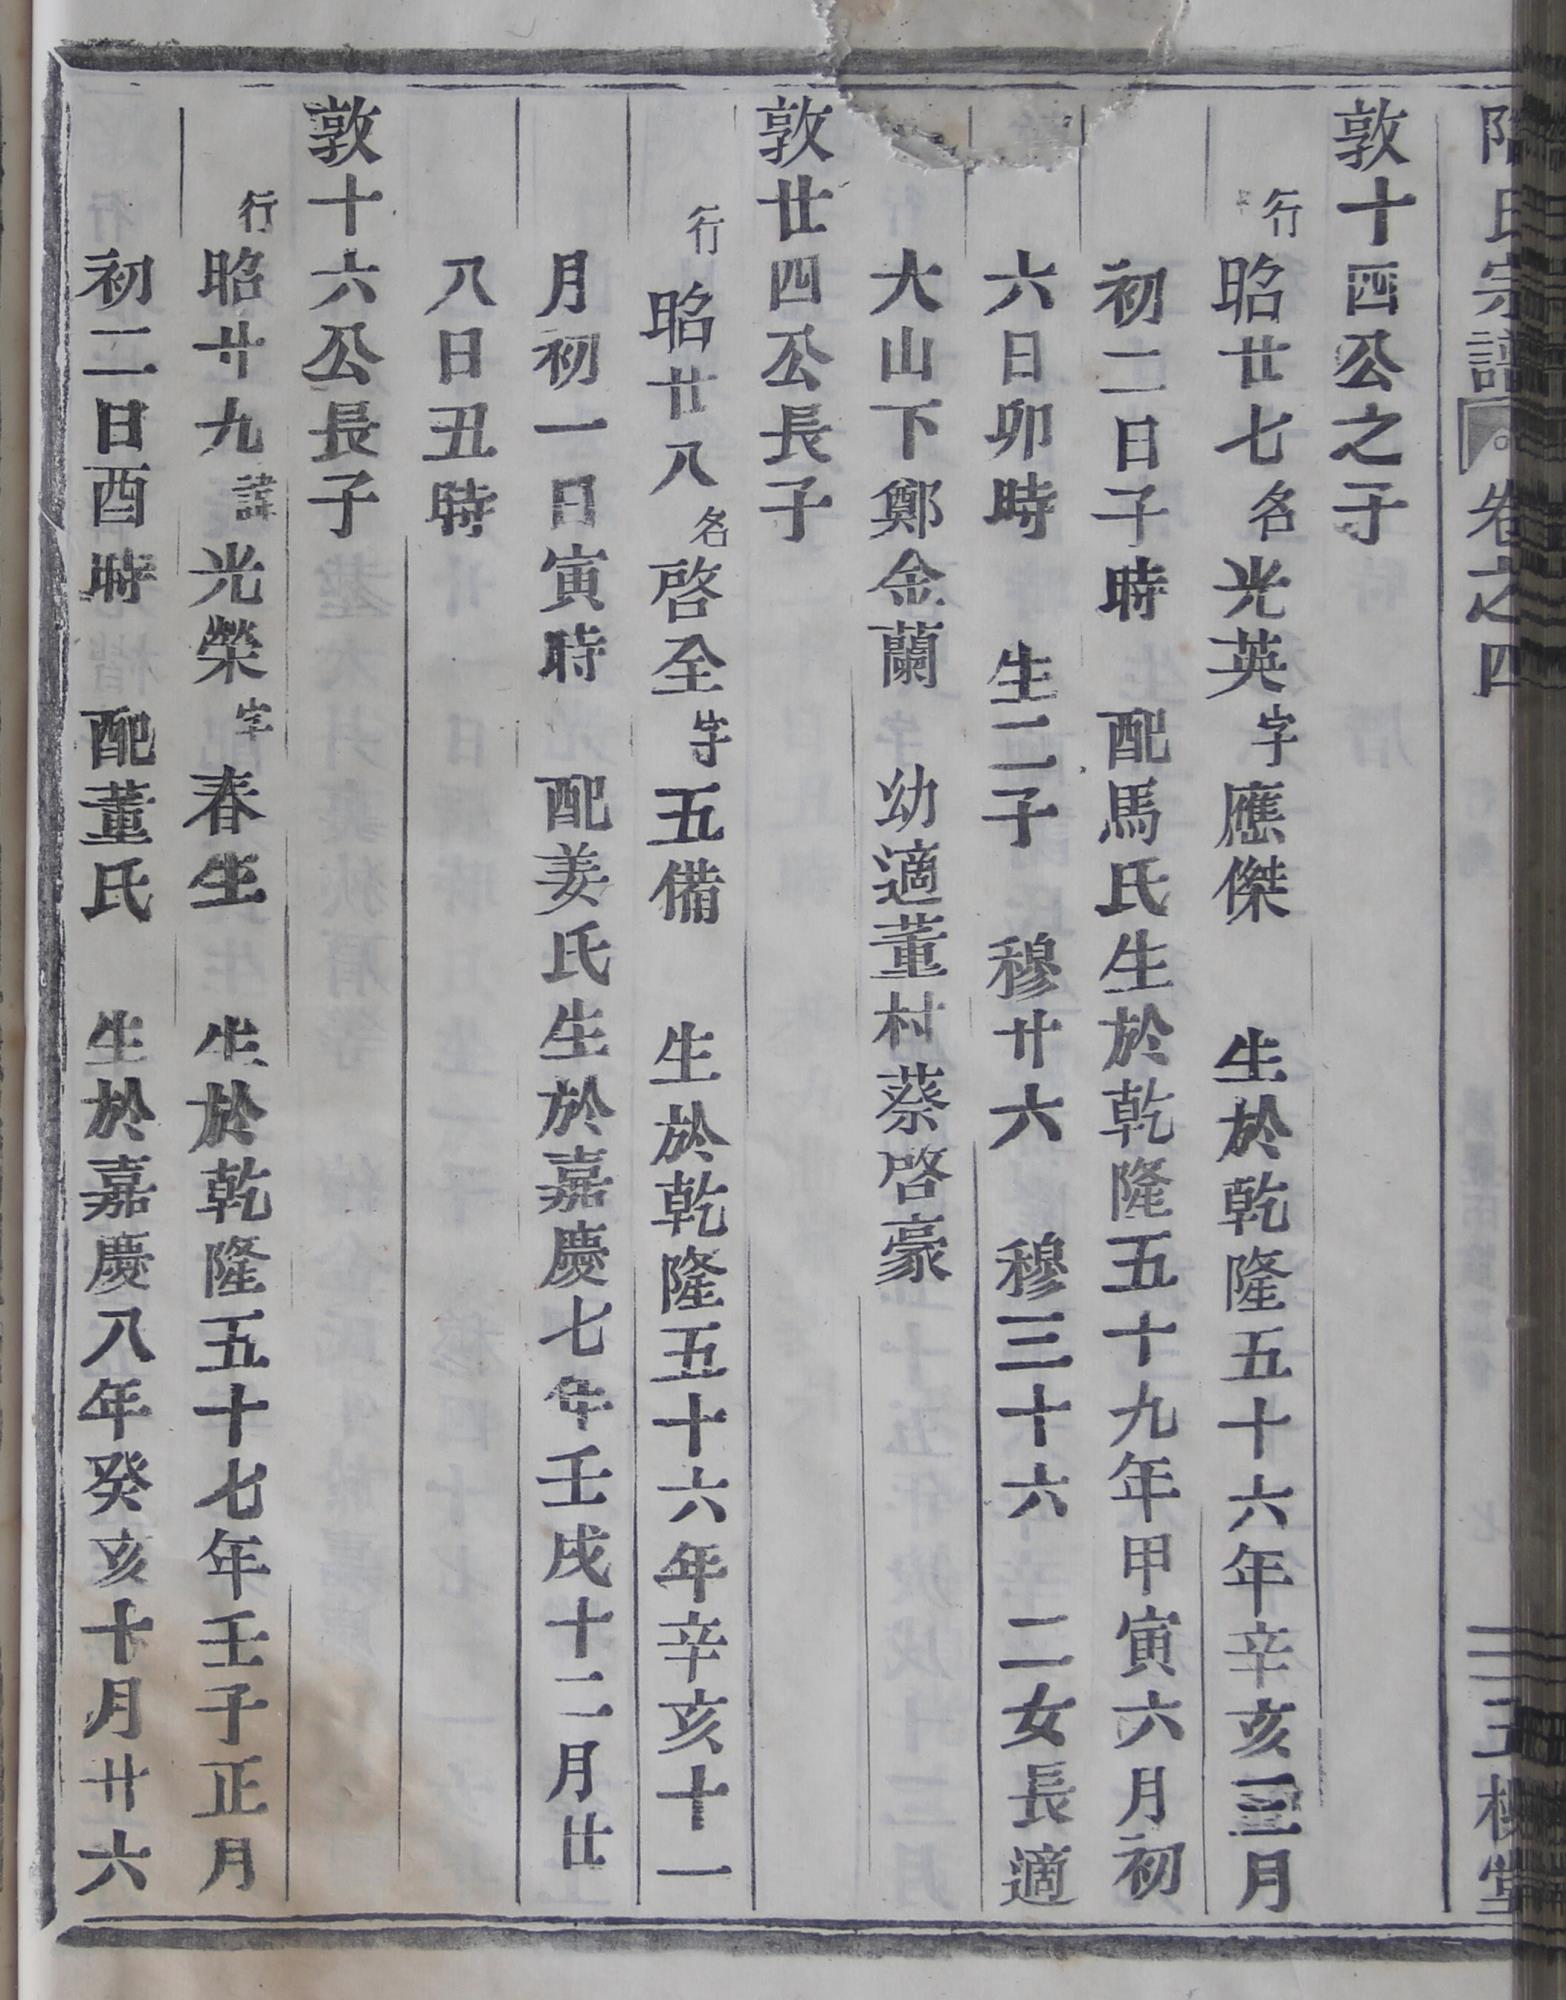 氏宗譜 卷之四
敦十四公之子
行昭廿七名光英字應傑 生於乾隆五十六年辛亥三月
初二日子時 配馬氏生於乾隆五十九年甲寅六月初
六日卯時 生二子 穆廿六 穆三十六 二女長適
大山下鄭金蘭 幼適董村蔡啓豪
敦廿四公長子
行昭廿八名啓全字五備 生於乾隆五十六年辛亥十一
月初一日寅時 配姜氏生於嘉慶七年壬戌十二月廿
八日丑時
敦十六公長子
行昭廿九諱光榮字春生 生於乾隆五十七年壬子正月
初二日酉時 配董氏 生於嘉慶八年癸亥十月廿六